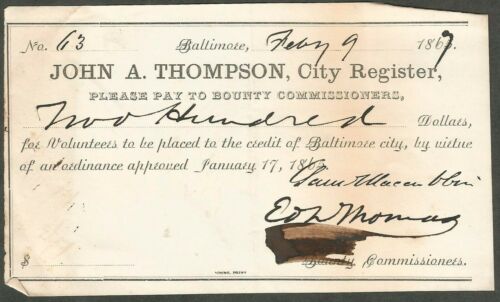 No. 63 Baltimore, Feby 9 1867
JOHN A. THOMPSON, City Register,
PLEASE PAY TO BOUNTY COMMISSIONERS,
Two Hundred Dollars,
for Volunteers to be placed to the credit of Baltimore city, by virtue
of an ordinance approved January 17, 186
Saml Maccubbin
Ed D Thomas
$ Bounty Commissioners.
YOUNG, PRINT